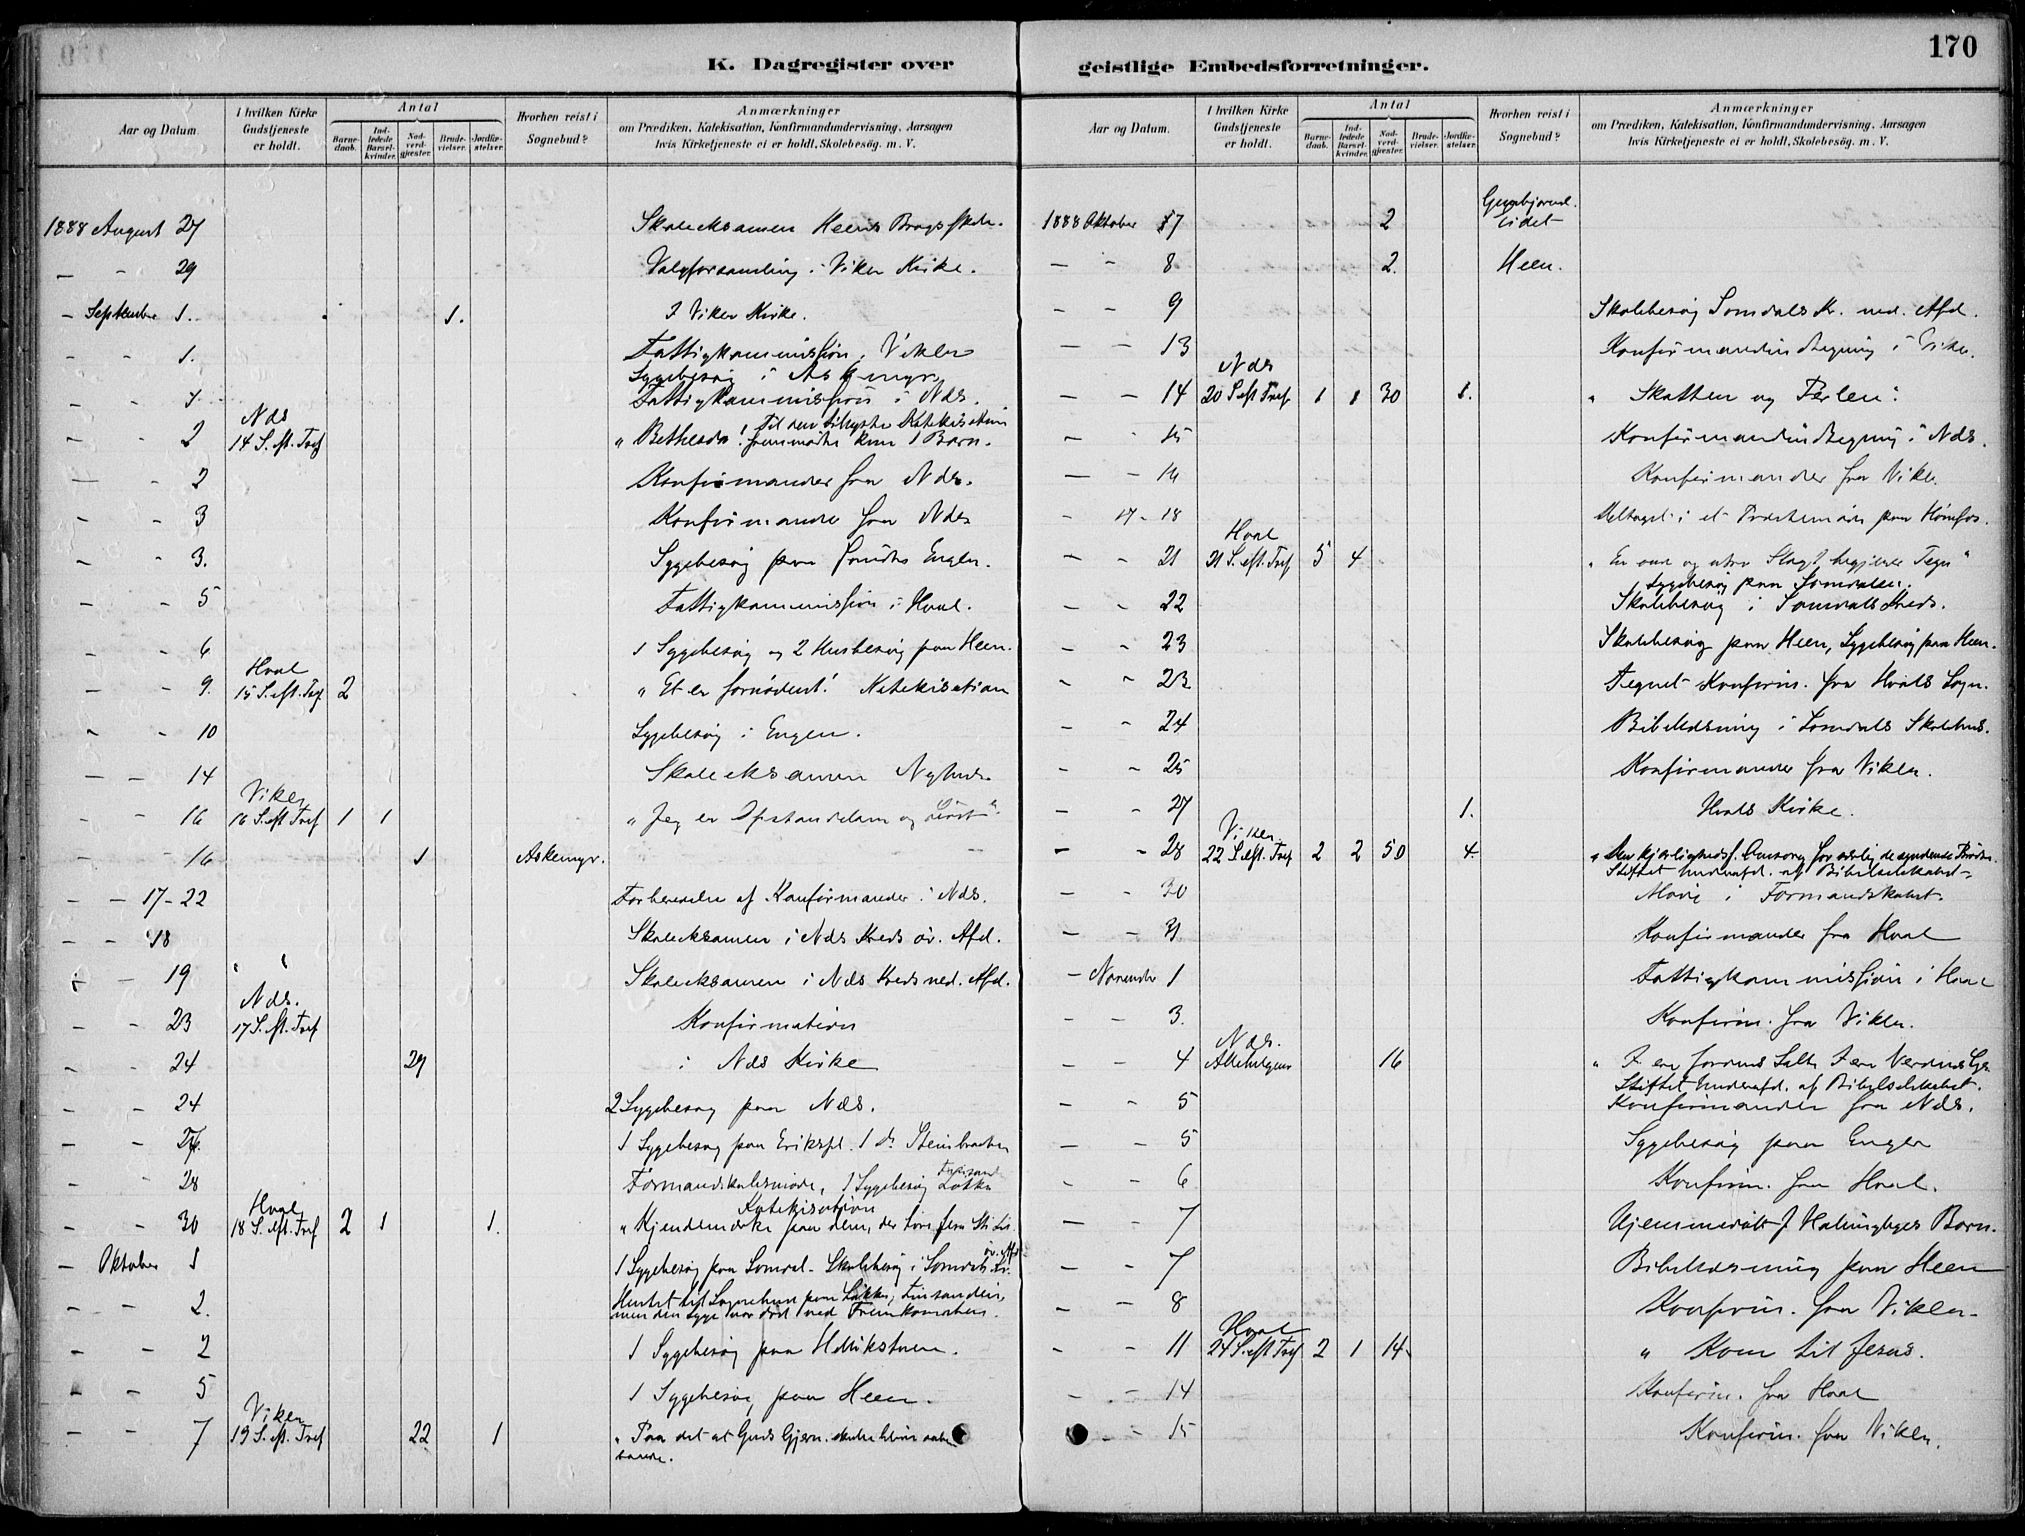 170
K. Dagregister over
Aar og Datum.
I hvilken Kirke Gudstjeneste er holdt.
Antal
Barnedaab.
Indledede Barselkvinder.
Nadverdgjester.
Brudevielser.
Jordfæstelser.
Hvorhen reist i Sognebud?
Anmærkninger
om Prædiken, Katekisation, Konfirmandundervisning, Aarsagen
hvis Kirketjeneste ei er holdt, Skolebesög. m. V.
1888 August 27 Skoleeksamen Heens
— - 29 Valgforsamling i Viker Kirke.
— September 1. 1. I Viker Kirke.
- - 1. Fattigkommission. Viker
Sygebesøg i Askemyr
- - 1. Fattigkommission i Nds.
Nds
- - 2 14 S. eft. Tref „Bethesda! Til den tilsagte Katekisation
fremmødte kun 1 Barn.
— - 2 Konfirmander fra Nds.
- - 3 Konfirmander fra Nds
- - 3. Sygebesøg paa Engen.
- - 5 Fattigkommission i Hval.
- - 6 1 Sygebesøg og 2 Husbesøg paa Heen.
Hval
- - 9. 15 S. eft. Tref 2 „Et er fornødent! Katekisation
- - 10 Sygebesøg i Engen.
- - 14 Skoleeksamen
Viker
- - 16 16 S. eft Tref 1 1 „Jeg er Opstandelsen og Livet"
- - 16 1 Askemyr.
- - 17-22 Forberedelse af Konfirmander i Nds.
- - 18 Skoleeksamen i Nds Kreds öv. Afd.
- - 19 „ „ Skoleeksamen i Nds Kreds ned. Afd.
Nds.
- - 23 17 S. eft. Tref Konfirmation
- - 24 29 i Nds Kirke
- - 24 2 Sygebesøg paa Nds.
- - 26. 1 Sygebesøg paa Erikspl. 1 do
- - 28 Formandskabsmøde, 1 Sygebesøg Løkka
Hval
- - 30 18 S. eft. Tref 2 1 1. Katekisation
„Kjendemærke paa dem, der
— Oktober 1 1 Sygebesøg paa Somdal - Skolebesøg i Somdals Kr. öv. Afd
- - 2. Hentet til Sognebud paa Løkka,
men den Syge var død ved Fremkomsten.
- - 2 1 Sygebesøg paa
- - 5 1 Sygebesøg paa Heen.
Viker
- - 7 19 S. eft. Tref 22 1 „Paa det at Guds Gjern. skulde blive aaben
bare.
geistlige Embedsforretninger.
Aar og Datum.
I hvilken Kirke Gudstjeneste er holdt.
Antal
Barnedaab.
Indledede Barselkvinder.
Nadverdgjester.
Brudevielser.
Jordfæstelser.
Hvorhen reist i Sognebud?
Anmærkninger
om Prædiken, Katekisation, Konfirmandundervisning, Aarsagen
hvis Kirketjeneste ei er holdt, Skolebesög. m. V.
1888 Oktober 7 2
— - 8 2. Heen.
- - 9 Skolebesøg Somdals Kr. ned. Afd.
— - 13 Konfirmandindtegning i Viker.
Nds
— - 14 20 S eft Tref 1 1 30 1. „Skatten og Perlen!
— - 15 Konfirmandindtegning i Nds.
— - 16 Konfirmander fra Viker
- 17 - 18 Deltaget i et Præstemøde paa Hønefos.
Hval
— - 21 21 S. eft. Tref 5 4 „En ond og utro Slægt begjærer Tegn"
1 Sygebesøg paa Somdalen.
— - 22 Skolebesøg i Somdals Kreds.
- - 23 Skolebesøg paa Heen, Sygebesøg paa Heen.
- - 23 Tegnet Konfirm. fra Hvals Sogn.
— - 24 Bibellæsning i Somdals Skolehus.
- - 25 Konfirmander fra Viker.
- - 27 1. Hvals Kirke.
Viker
— - 28 22 S. eft. Tref 2 2 50 4. „Den kjærlighedsf. Omsorg for særlig de syndende Brødre.
Stiftet Underafd. af Bibelselskabet.
— - 30 Møde i Formandskabet.
— - 31 Konfirmander fra Hval
— November 1 Fattigkommission i Hval
- - 3. Konfirm. fra Viker.
Nds.
- - 4 Allehelgens 16 „I ere Jordens Salt, I ere Verdens Lys
Stiftet Underafd. af Bibelselskabet.
- - 5 Konfirmander fra Nds.
- - 5 Sygebesøg paa Enger
- - 6 Konfirm. fra Hval.
— - 7 Hjemmedøbt Børn.
- - 7 Bibellæsning paa Heen
- — 8 Konfirm. fra Viker.
Hval
- - 11 24 S. eft Tref 2 1 14 „Kom til Jesus.
- - 14 Konfirm. fra Hval
- - 15 Konfirm. fra Viker.